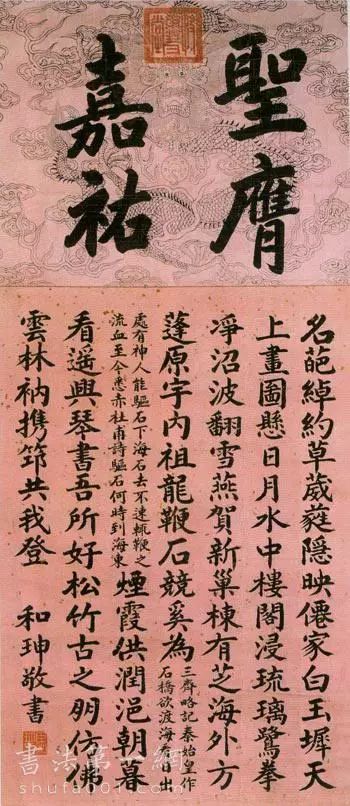 聖膺
嘉祐
名葩綽約草葳蕤隱映僊家白玉墀天
上畫圖懸日月水中樓閣浸琉璃鷺拳
淨沼波翻雪燕賀新巢棟有芝海外方
蓬原宇內祖龍鞭石競奚為
三齊略記秦始皇作
石橋欲渡海看日出
處有神人能驅石下海石去不速輒鞭之
流血至今悉赤杜甫詩驅石何時到海東
煙霞供潤浥朝暮
看遥興琴書吾所好松竹古之朋仿佛
雲林衲携筇共我登
和珅敬書
書法第一網
shufa001.com